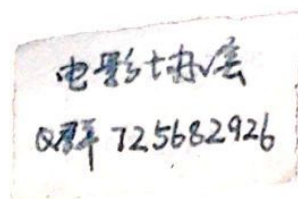 电影协会
Q群 725682926